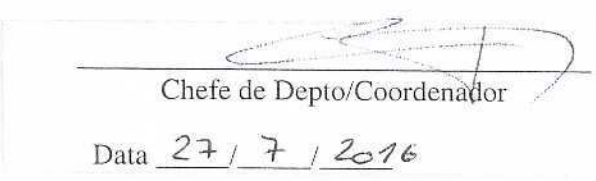 Chefe de Depto/Coordenador
Data 27 / 7 / 2016